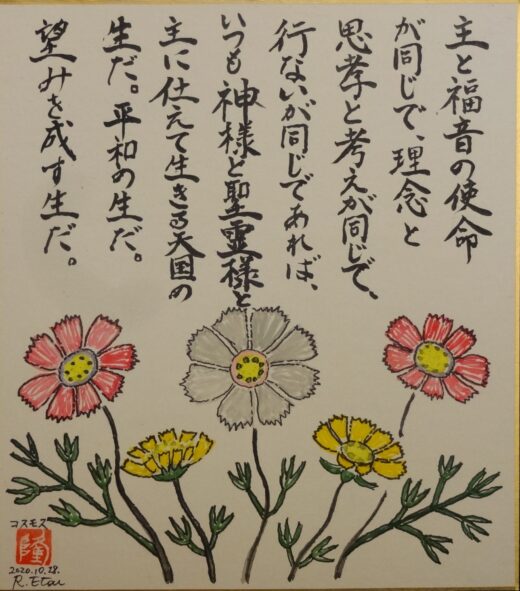 主と福音の使命
が同じで、理念と
思考と考えが同じで、
行ないが同じであれば、
いつも神様と聖霊様と
主に仕えて生きる天国の
生だ。平和の生だ。
望みを成す生だ。
コスモス
隆
2020.10.28.
R.Etou